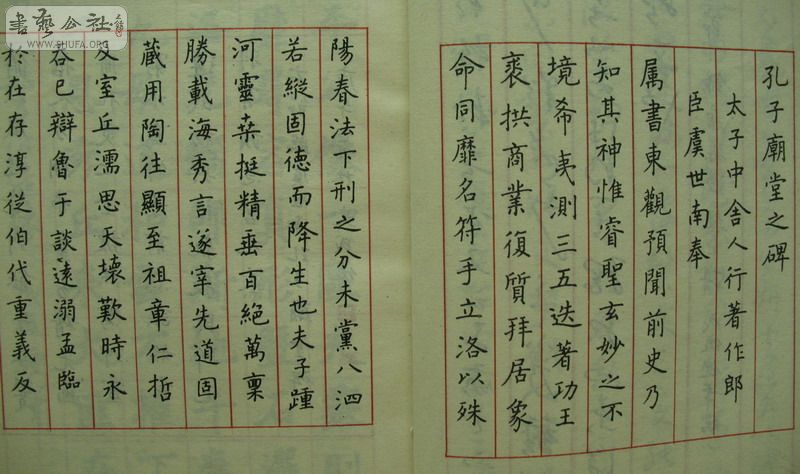 孔子廟堂之碑
太子中舍人行著作郎
臣虞世南奉
属書東觀預聞前史乃
知其神惟睿聖玄妙之不
境希夷測三五迭著功王
裘拱商業復質拜居象
命同靡名符手立洛以殊
陽春法下刑之分未黨八泗
若縱固德而降生也夫子踵
河靈桒挺精垂百絕萬稟
勝載海秀言遂宰先道固
蔵用陶往顯至祖章仁哲
及室丘濡思天壞歎時永
吝已辯魯于談遠溺孟臨
於在存淳從伯代重義反
書藝公社
WWW.SHUFA.ORG